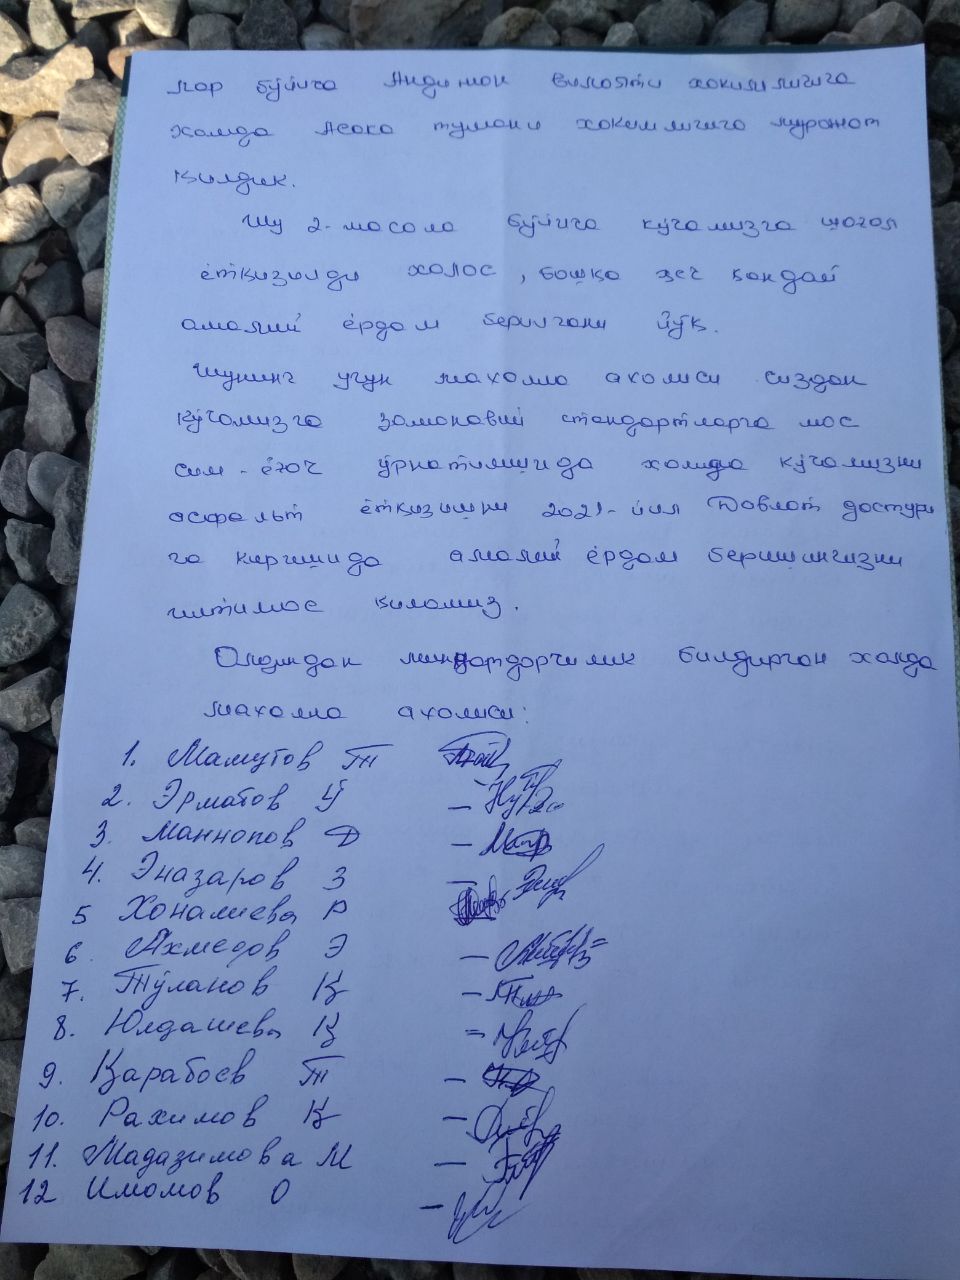 лар бўйича Андижон вилояти хокимлигига
хамда Асака тумани хокимлигига мурожат
қилдик.
Шу 2-масала бўйича кўчамизга шағал
ётқизилди холос, бошқа хеч қандай
амалий ёрдам берилгани йўқ.
Шунинг учун махалла ахолиси сиздан
кўчамизга замонавий стандартларга мос
сим-ёғоч ўрнатилишида хамда кўчамизни
асфальт ётқизишни 2021-йил Давлат дастури
га киришида амалий ёрдам беришингизни
илтимос қиламиз.
Олдиндан миннатдорчилик билдирган холда
махалла ахолиси:
1. Мамутов Т
2. Эрматов Ў
3. Маннопов Д
4. Эназаров З
5 Хоналиева Р
6. Ахмедов Э
7. Тўланов Қ
8. Юлдашева Қ
9. Қарабоев Т
10. Рахимов Қ
11. Мадазимова М
12 Имомов О